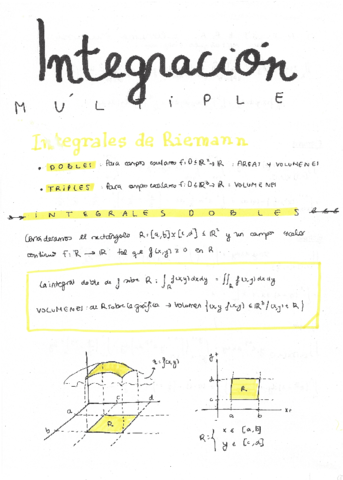 Integración
MÚLTIPLE
Integrales de Riemann
• DOBLES: Para campos escalares f: D⊆R²→R : ÁREAS Y VOLUMENES
• TRIPLES: Para campos escalares f: D⊆R³→R : VOLUMENES
INTEGRALES DOBLES
Consideramos el rectángulo R=[a,b]x[c,d] ⊆ R² y un campo escalar
continuo f: R → R tal que f(x,y) ≥ 0 en R.
La integral doble de f sobre R: ∫_R f(x,y)dxdy = ∬_R f(x,y)dxdy
VOLUMENES: de R sobre la gráfica → Volumen {(x,y,f(x,y)) ∈ R³/(x,y) ∈ R}
z=f(x,y)
a
b
c
d
R
y
d
c
R
a b x
R = { x ∈ [a,b]
y ∈ [c,d]